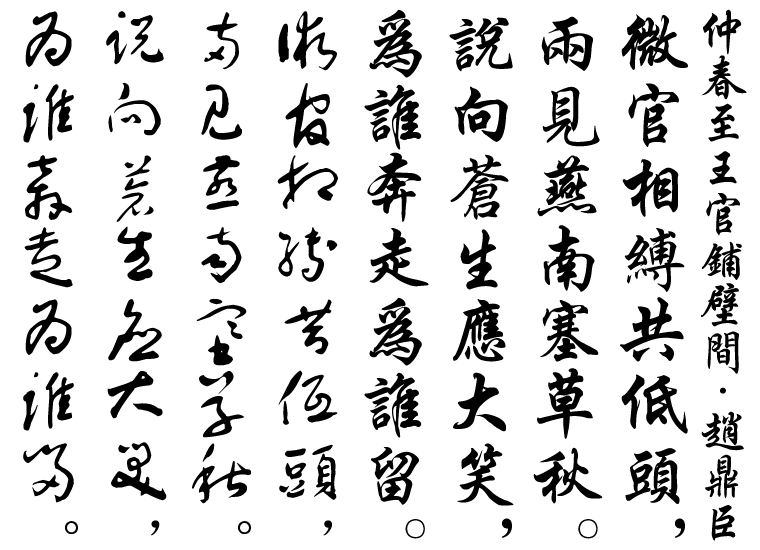 仲春至王官鋪壁間·趙鼎臣
微官相縛共低頭，
兩見燕南塞草秋。
說向蒼生應大笑，
為誰奔走為誰留。
微官相縛共低頭，
兩見燕南塞草秋。
說向蒼生應大笑，
為誰奔走為誰留。